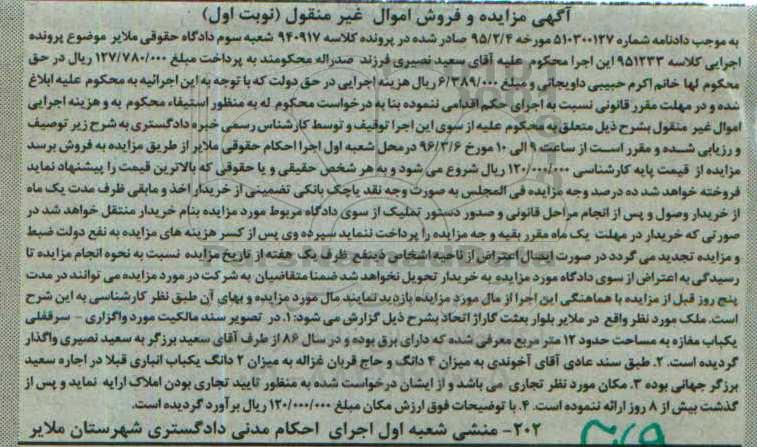 آگهی مزایده و فروش اموال غیر منقول (نوبت اول)
به موجب دادنامه شماره ۵۱۰۳۰۰۱۲۷ مورخه ۹۵/۲/۴ صادر شده در پرونده کلاسه ۹۴۰۹۱۷ شعبه سوم دادگاه حقوقی ملایر موضوع پرونده
اجرایی کلاسه ۹۵۱۲۳۳ این اجرا محکوم علیه آقای سعید نصیری فرزند صدراله محکومند به پرداخت مبلغ ۱۲۷/۷۸۰/۰۰۰ ریال در حق
محکوم لها خانم اکرم حبیبی داویجانی و مبلغ ۶/۳۸۹/۰۰۰ ریال هزینه اجرایی در حق دولت که با توجه به این اجرائیه به محکوم علیه ابلاغ
شده و در مهلت مقرر قانونی نسبت به اجرای حکم اقدامی ننموده بنا به درخواست محکوم له به منظور استیفاء محکوم به و هزینه اجرایی
اموال غیر منقول بشرح ذیل متعلق به محکوم علیه از سوی این اجرا توقیف و توسط کارشناس رسمی خبره دادگستری به شرح زیر توصیف
و رزیابی شده و مقرر است از ساعت ۹ الی ۱۰ مورخ ۹۶/۳/۶ درمحل شعبه اول اجرا احکام حقوقی ملایر از طریق مزایده به فروش برسد
مزایده از قیمت پایه کارشناسی ۱۲۰/۰۰۰/۰۰۰ ریال شروع می شود و به هر شخص حقیقی و یا حقوقی که بالاترین قیمت را پیشنهاد نماید
فروخته خواهد شد ده درصد وجه مزایده فی المجلس به صورت وجه نقد یاچک بانکی تضمینی از خریدار اخذ و مابقی ظرف مدت یک ماه
از خریدار وصول و پس از انجام مراحل قانونی و صدور دستور تملیک از سوی دادگاه مربوط مورد مزایده بنام خریدار منتقل خواهد شد در
صورتی که خریدار در مهلت یک ماه مقرر بقیه و جه مزایده را پرداخت ننماید سپرده وی پس از کسر هزینه های مزایده به نفع دولت ضبط
و مزایده تجدید می گردد در صورت ایصال اعتراض از ناحیه اشخاص ذینفع ظرف یک هفته از تاریخ مزایده نسبت به نحوه انجام مزایده تا
رسیدگی به اعتراض از سوی دادگاه مورد مزایده به خریدار تحویل نخواهد شد ضمنا متقاضیان به شرکت در مورد مزایده می توانند در مدت
پنج روز قبل از مزایده با هماهنگی این اجرا از مال مورد مزایده بازدید نمایند مال مورد مزایده و بهای آن طبق نظر کارشناسی به این شرح
است. ملک مورد نظر واقع در ملایر بلوار بعثت گاراژ اتحاد بشرح ذیل گزارش می شود: ۱. در تصویر سند مالکیت مورد واگزاری - سرقفلی
یکباب مغازه به مساحت حدود ۱۲ متر مربع معرفی شده که دارای برق بوده و در سال ۸۶ از طرف آقای سعید برزگر به سعید نصیری واگذار
گردیده است. ۲. طبق سند عادی آقای آخوندی به میزان ۴ دانگ و حاج قربان غزاله به میزان ۲ دانگ یکباب انباری قبلا در اجاره سعید
برزگر جهانی بوده ۳. مکان مورد نظر تجاری می باشد و از ایشان درخواست شده به منظور تایید تجاری بودن املاک ارایه نماید و پس از
گذشت بیش از ۸ روز ارائه ننموده است. ۴. با توضیحات فوق ارزش مکان مبلغ ۱۲۰/۰۰۰/۰۰۰ ریال برآورد گردیده است.
۲۰۲- منشی شعبه اول اجرای احکام مدنی دادگستری شهرستان ملایر